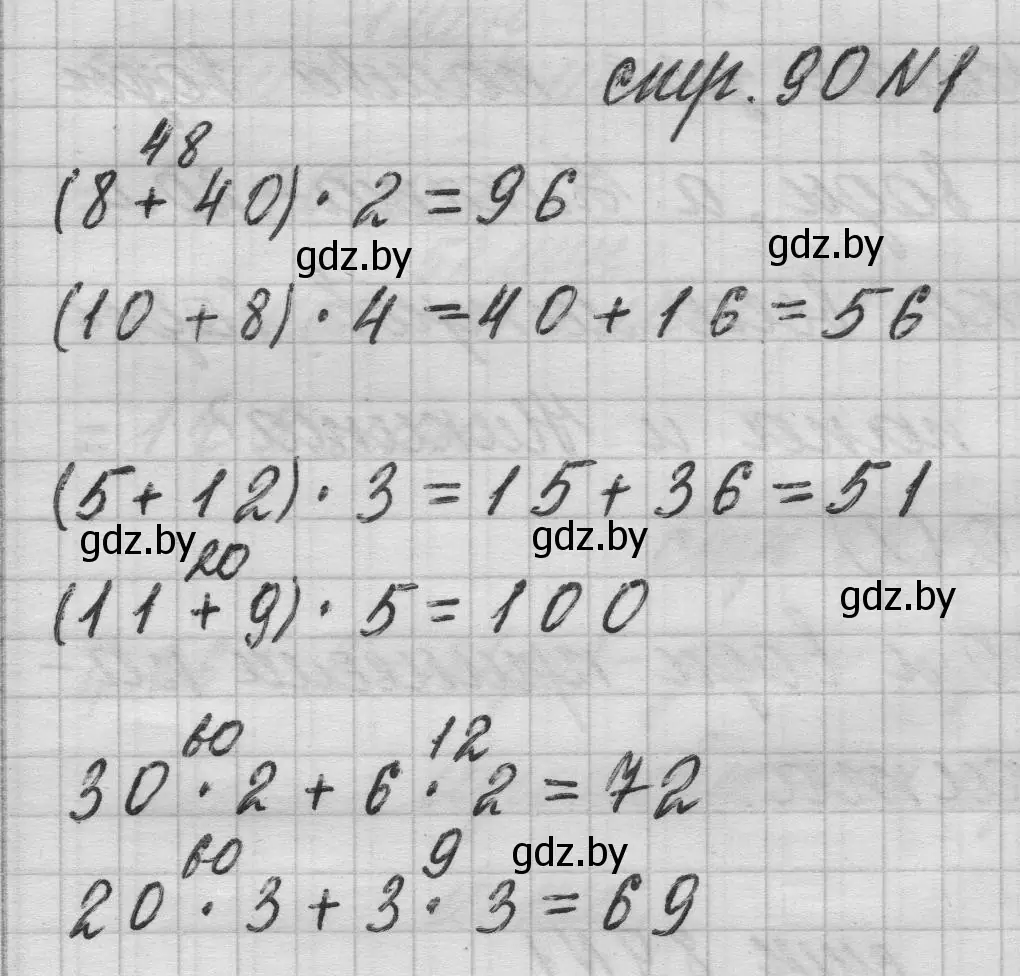 стр. 90 №1
48
(8 + 40) · 2 = 96
gdz.by gdz.by
(10 + 8) · 4 = 40 + 16 = 56
(5 + 12) · 3 = 15 + 36 = 51
gdz.by gdz.by
20
(11 + 9) · 5 = 100
gdz.by
60 12
30 · 2 + 6 · 2 = 72
60 9
gdz.by
20 · 3 + 3 · 3 = 69